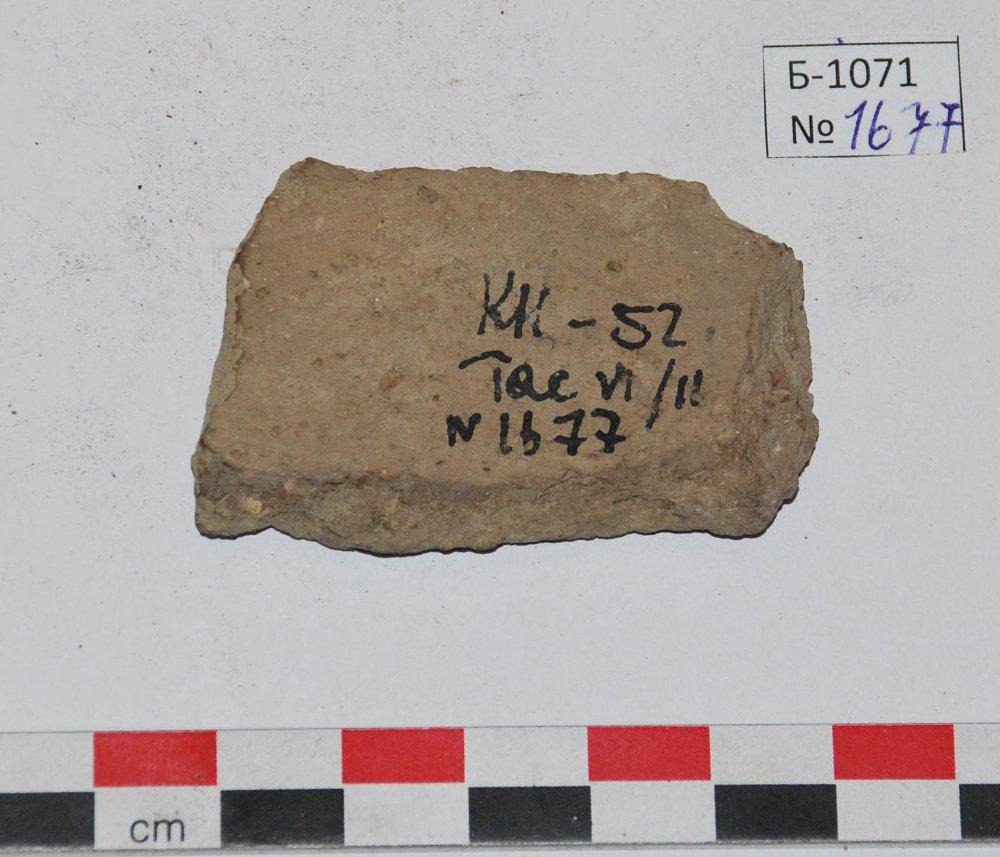 Б-1071
№ 1677
КК-52
Тас VI/II
N 1677
cm